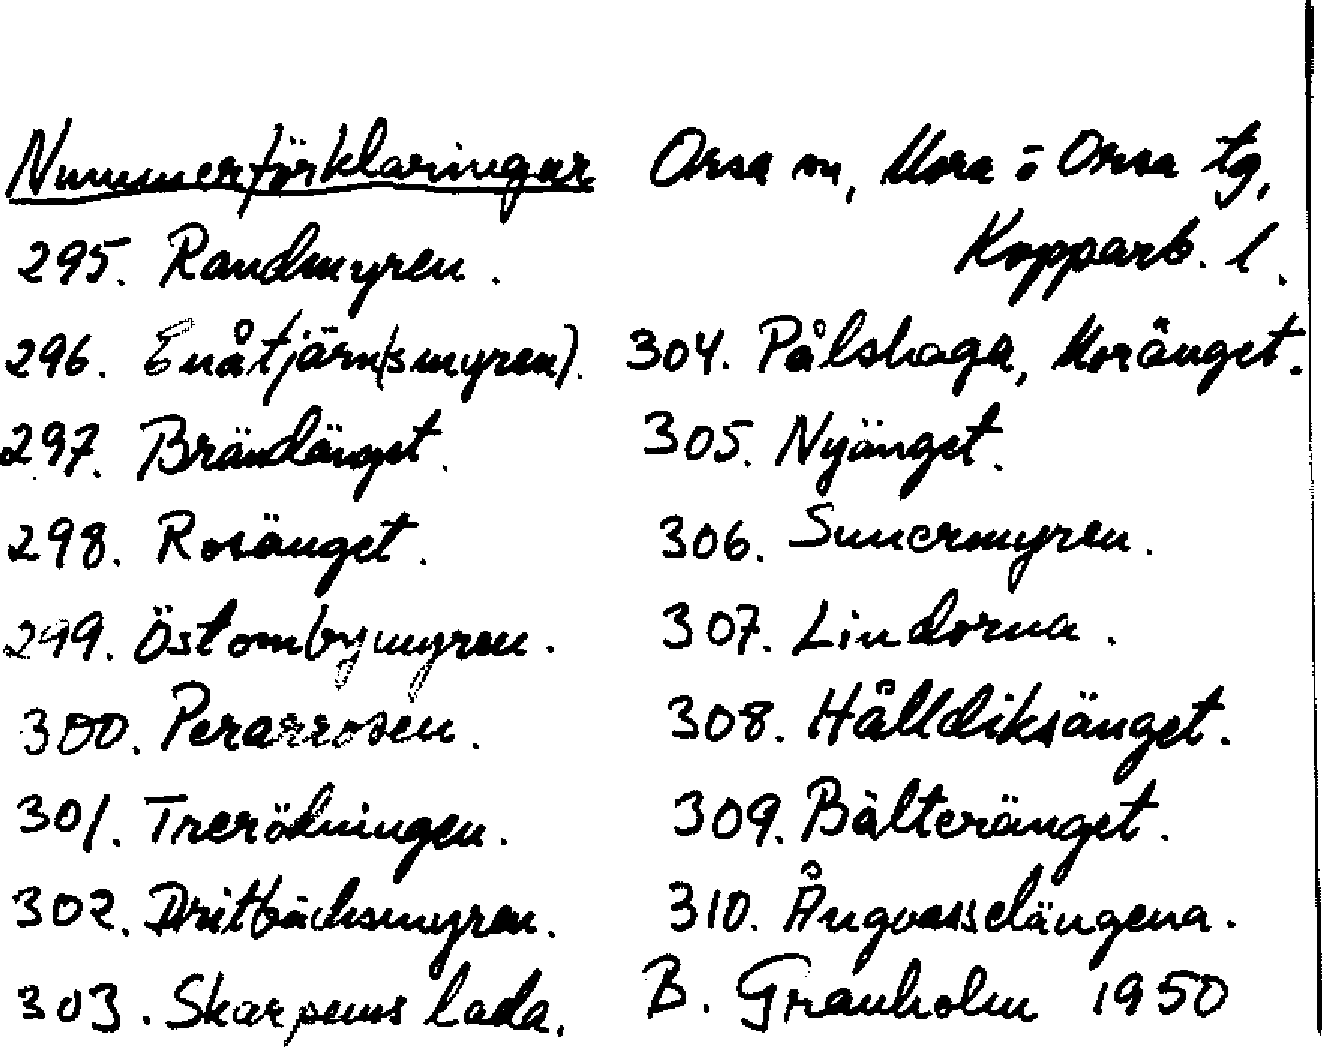 Nummerförklaringar Orsa sn, Mora o Orsa tg,
Kopparb. l.
295. Randmyren.
296. Enåtjärn(smyren).
297. Brändänget.
298. Rosänget.
299. Östombymyren.
300. Perarrosen.
301. Trerödningen.
302. Dritbäcksmyren.
303. Skarpens lada.
304. Pålshaga, Moränget.
305. Nyänget.
306. Sunermyren.
307. Lindorna.
308. Hålldiksänget.
309. Bälteränget.
310. Ångvasselängena.
B. Granholm 1950